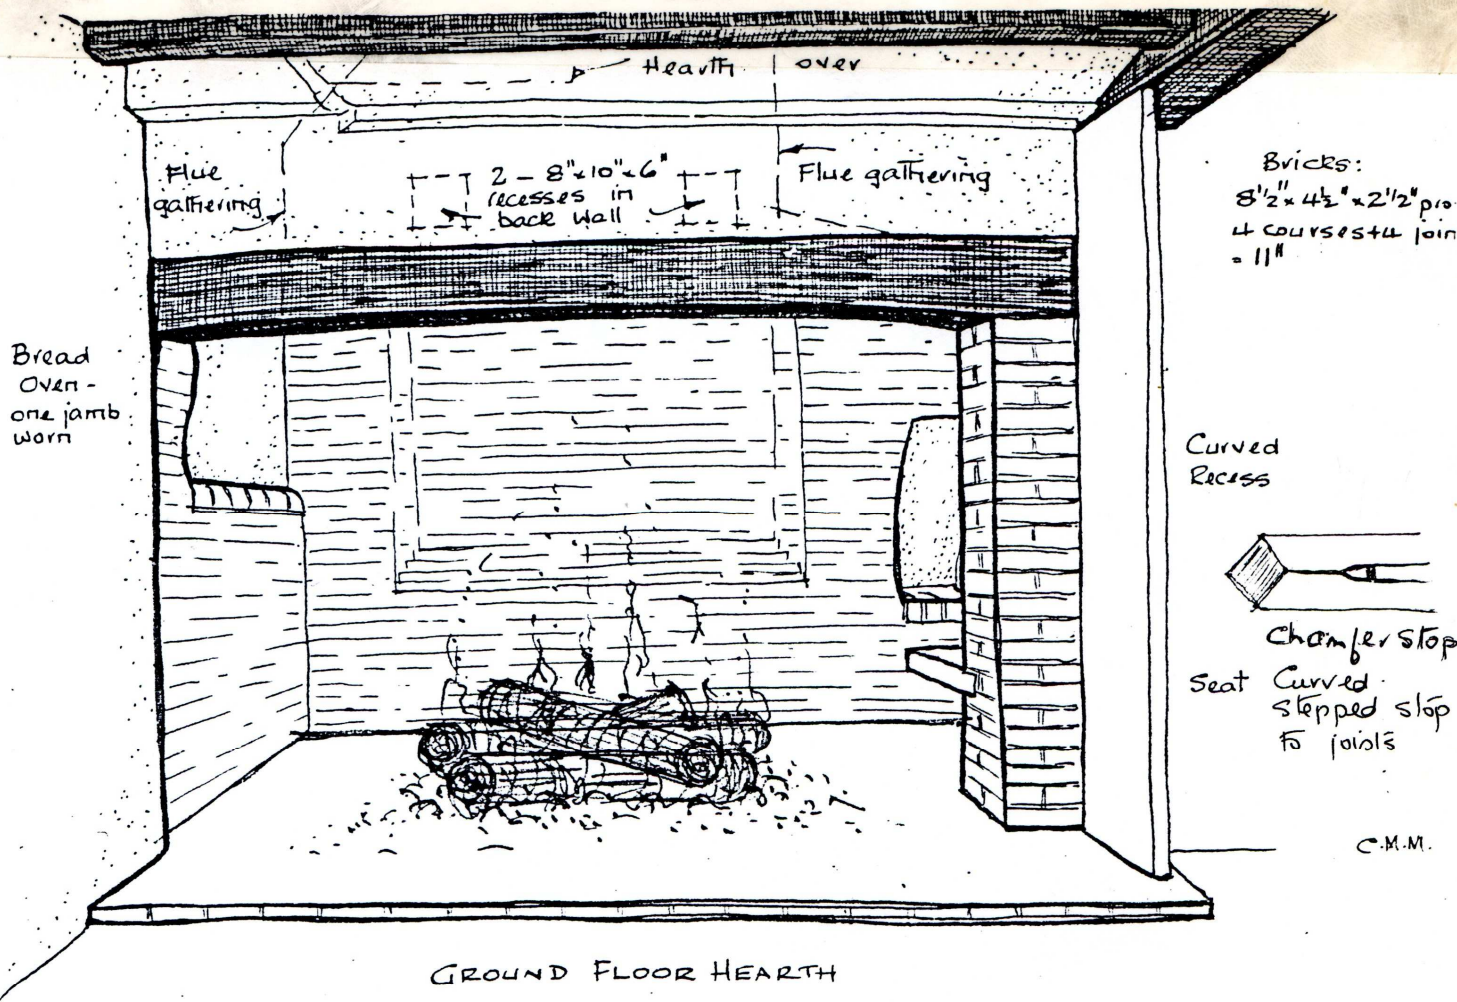 Hearth over
Flue
gathering
2 - 8"x10"x6"
recesses in
back wall
Flue gathering
Bricks:
8½" x 4½" x 2½" pro
4 courses + 4 join
= 11"
Bread
Oven -
one jamb
worn
Curved
Recess
Chamfer stop
Seat
Curved
stepped stop
to joists
C.M.M.
GROUND FLOOR HEARTH